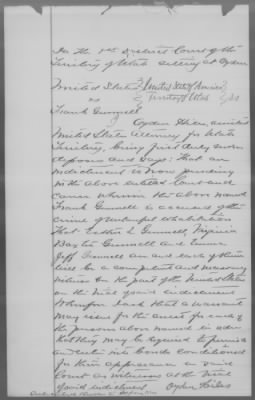 In the 1st District Court of the
Territory of Utah sitting at Ogden
United States } United States of America }
vs } Territory of Utah } SS
Frank Gunnell }
Ogden Hiles, assistant
United States Attorney for Utah
Territory, being first duly sworn
deposes and says: That an
indictment is now pending
in the above entitled Court and
cause wherein the above named
Frank Gunnell is accused of the
crime of unlawful cohabitation
That Esther L. Gunnell, Virginia
Gunnell and Emma
Jeff Gunnell are and each of them
is a competent and
witness for the part of the United States
on the trial of said indictment
Wherefore that a warrant
may issue for the arrest of each of
the persons above named in order
that they may be required to furnish
Bonds conditioned
for their appearance in said
Court as witnesses at the trial
of said indictment
Ogden Hiles